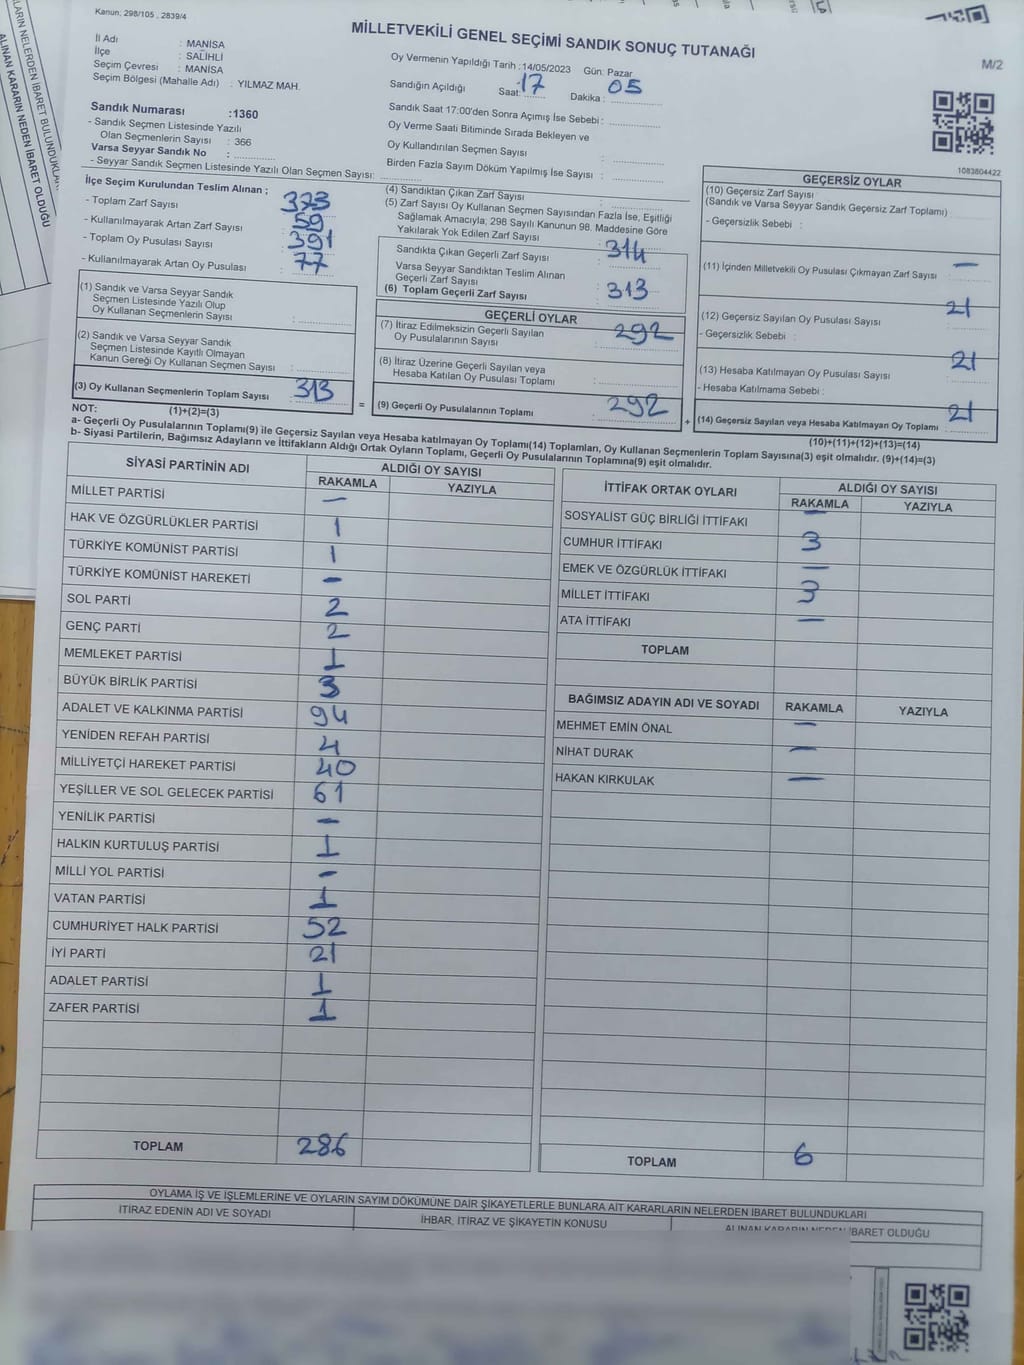 Kanun, 298/105 , 2839/4
MİLLETVEKİLİ GENEL SEÇİMİ SANDIK SONUÇ TUTANAĞI
M/2
İl Adı : MANİSA
İlçe : SALİHLİ
Seçim Çevresi : MANİSA
Seçim Bölgesi (Mahalle Adı) : YILMAZ MAH.
Oy Vermenin Yapıldığı Tarih :14/05/2023 Gün: Pazar
Sandığın Açıldığı Saat: 17 Dakika : 05
Sandık Saat 17:00'den Sonra Açılmış İse Sebebi :
Oy Verme Saati Bitiminde Sırada Bekleyen ve
Oy Kullandırılan Seçmen Sayısı :
Birden Fazla Sayım Döküm Yapılmış İse Sayısı :
Sandık Numarası :1360
- Sandık Seçmen Listesinde Yazılı
Olan Seçmenlerin Sayısı : 366
Varsa Seyyar Sandık No :
- Seyyar Sandık Seçmen Listesinde Yazılı Olan Seçmen Sayısı:
1083804422
İlçe Seçim Kurulundan Teslim Alınan ;
- Toplam Zarf Sayısı : 373
- Kullanılmayarak Artan Zarf Sayısı : 59
- Toplam Oy Pusulası Sayısı : 391
- Kullanılmayarak Artan Oy Pusulası : 77
(1) Sandık ve Varsa Seyyar Sandık
Seçmen Listesinde Yazılı Olup
Oy Kullanan Seçmenlerin Sayısı :
(2) Sandık ve Varsa Seyyar Sandık
Seçmen Listesinde Kayıtlı Olmayan
Kanun Gereği Oy Kullanan Seçmen Sayısı :
(3) Oy Kullanan Seçmenlerin Toplam Sayısı : 313
(1)+(2)=(3)
(4) Sandıktan Çıkan Zarf Sayısı :
(5) Zarf Sayısı Oy Kullanan Seçmen Sayısından Fazla İse, Eşitliği
Sağlamak Amacıyla; 298 Sayılı Kanunun 98. Maddesine Göre
Yakılarak Yok Edilen Zarf Sayısı :
Sandıkta Çıkan Geçerli Zarf Sayısı : 314
Varsa Seyyar Sandıktan Teslim Alınan
Geçerli Zarf Sayısı :
(6) Toplam Geçerli Zarf Sayısı : 313
GEÇERLİ OYLAR
(7) İtiraz Edilmeksizin Geçerli Sayılan
Oy Pusulalarının Sayısı : 292
(8) İtiraz Üzerine Geçerli Sayılan veya
Hesaba Katılan Oy Pusulası Toplamı :
= (9) Geçerli Oy Pusulalarının Toplamı : 292
GEÇERSİZ OYLAR
(10) Geçersiz Zarf Sayısı
(Sandık ve Varsa Seyyar Sandık Geçersiz Zarf Toplamı)
- Geçersizlik Sebebi :
(11) İçinden Milletvekili Oy Pusulası Çıkmayan Zarf Sayısı : —
(12) Geçersiz Sayılan Oy Pusulası Sayısı : 21
- Geçersizlik Sebebi :
(13) Hesaba Katılmayan Oy Pusulası Sayısı : 21
- Hesaba Katılmama Sebebi :
+ (14) Geçersiz Sayılan veya Hesaba Katılmayan Oy Toplamı : 21
(10)+(11)+(12)+(13)=(14)
NOT:
a- Geçerli Oy Pusulalarının Toplamı(9) ile Geçersiz Sayılan veya Hesaba katılmayan Oy Toplamı(14) Toplamları, Oy Kullanan Seçmenlerin Toplam Sayısına(3) eşit olmalıdır. (9)+(14)=(3)
b- Siyasi Partilerin, Bağımsız Adayların ve İttifakların Aldığı Ortak Oyların Toplamı, Geçerli Oy Pusulalarının Toplamına(9) eşit olmalıdır.
SİYASİ PARTİNİN ADI ALDIĞI OY SAYISI
RAKAMLA YAZIYLA
MİLLET PARTİSİ —
HAK VE ÖZGÜRLÜKLER PARTİSİ 1
TÜRKİYE KOMÜNİST PARTİSİ 1
TÜRKİYE KOMÜNİST HAREKETİ -
SOL PARTİ 2
GENÇ PARTİ 2
MEMLEKET PARTİSİ 1
BÜYÜK BİRLİK PARTİSİ 3
ADALET VE KALKINMA PARTİSİ 94
YENİDEN REFAH PARTİSİ 4
MİLLİYETÇİ HAREKET PARTİSİ 40
YEŞİLLER VE SOL GELECEK PARTİSİ 61
YENİLİK PARTİSİ -
HALKIN KURTULUŞ PARTİSİ 1
MİLLİ YOL PARTİSİ -
VATAN PARTİSİ 1
CUMHURİYET HALK PARTİSİ 52
İYİ PARTİ 21
ADALET PARTİSİ 1
ZAFER PARTİSİ 1
TOPLAM 286
İTTİFAK ORTAK OYLARI ALDIĞI OY SAYISI
RAKAMLA YAZIYLA
SOSYALİST GÜÇ BİRLİĞİ İTTİFAKI —
CUMHUR İTTİFAKI 3
EMEK VE ÖZGÜRLÜK İTTİFAKI —
MİLLET İTTİFAKI 3
ATA İTTİFAKI —
TOPLAM
BAĞIMSIZ ADAYIN ADI VE SOYADI RAKAMLA YAZIYLA
MEHMET EMİN ÖNAL —
NİHAT DURAK —
HAKAN KIRKULAK —
TOPLAM 6
OYLAMA İŞ VE İŞLEMLERİNE VE OYLARIN SAYIM DÖKÜMÜNE DAİR ŞİKAYETLERLE BUNLARA AİT KARARLARIN NELERDEN İBARET BULUNDUKLARI
İTİRAZ EDENİN ADI VE SOYADI İHBAR, İTİRAZ VE ŞİKAYETİN KONUSU ALINAN KARARIN NEDEN İBARET OLDUĞU
ALINAN KARARIN NEDEN İBARET OLDUĞU